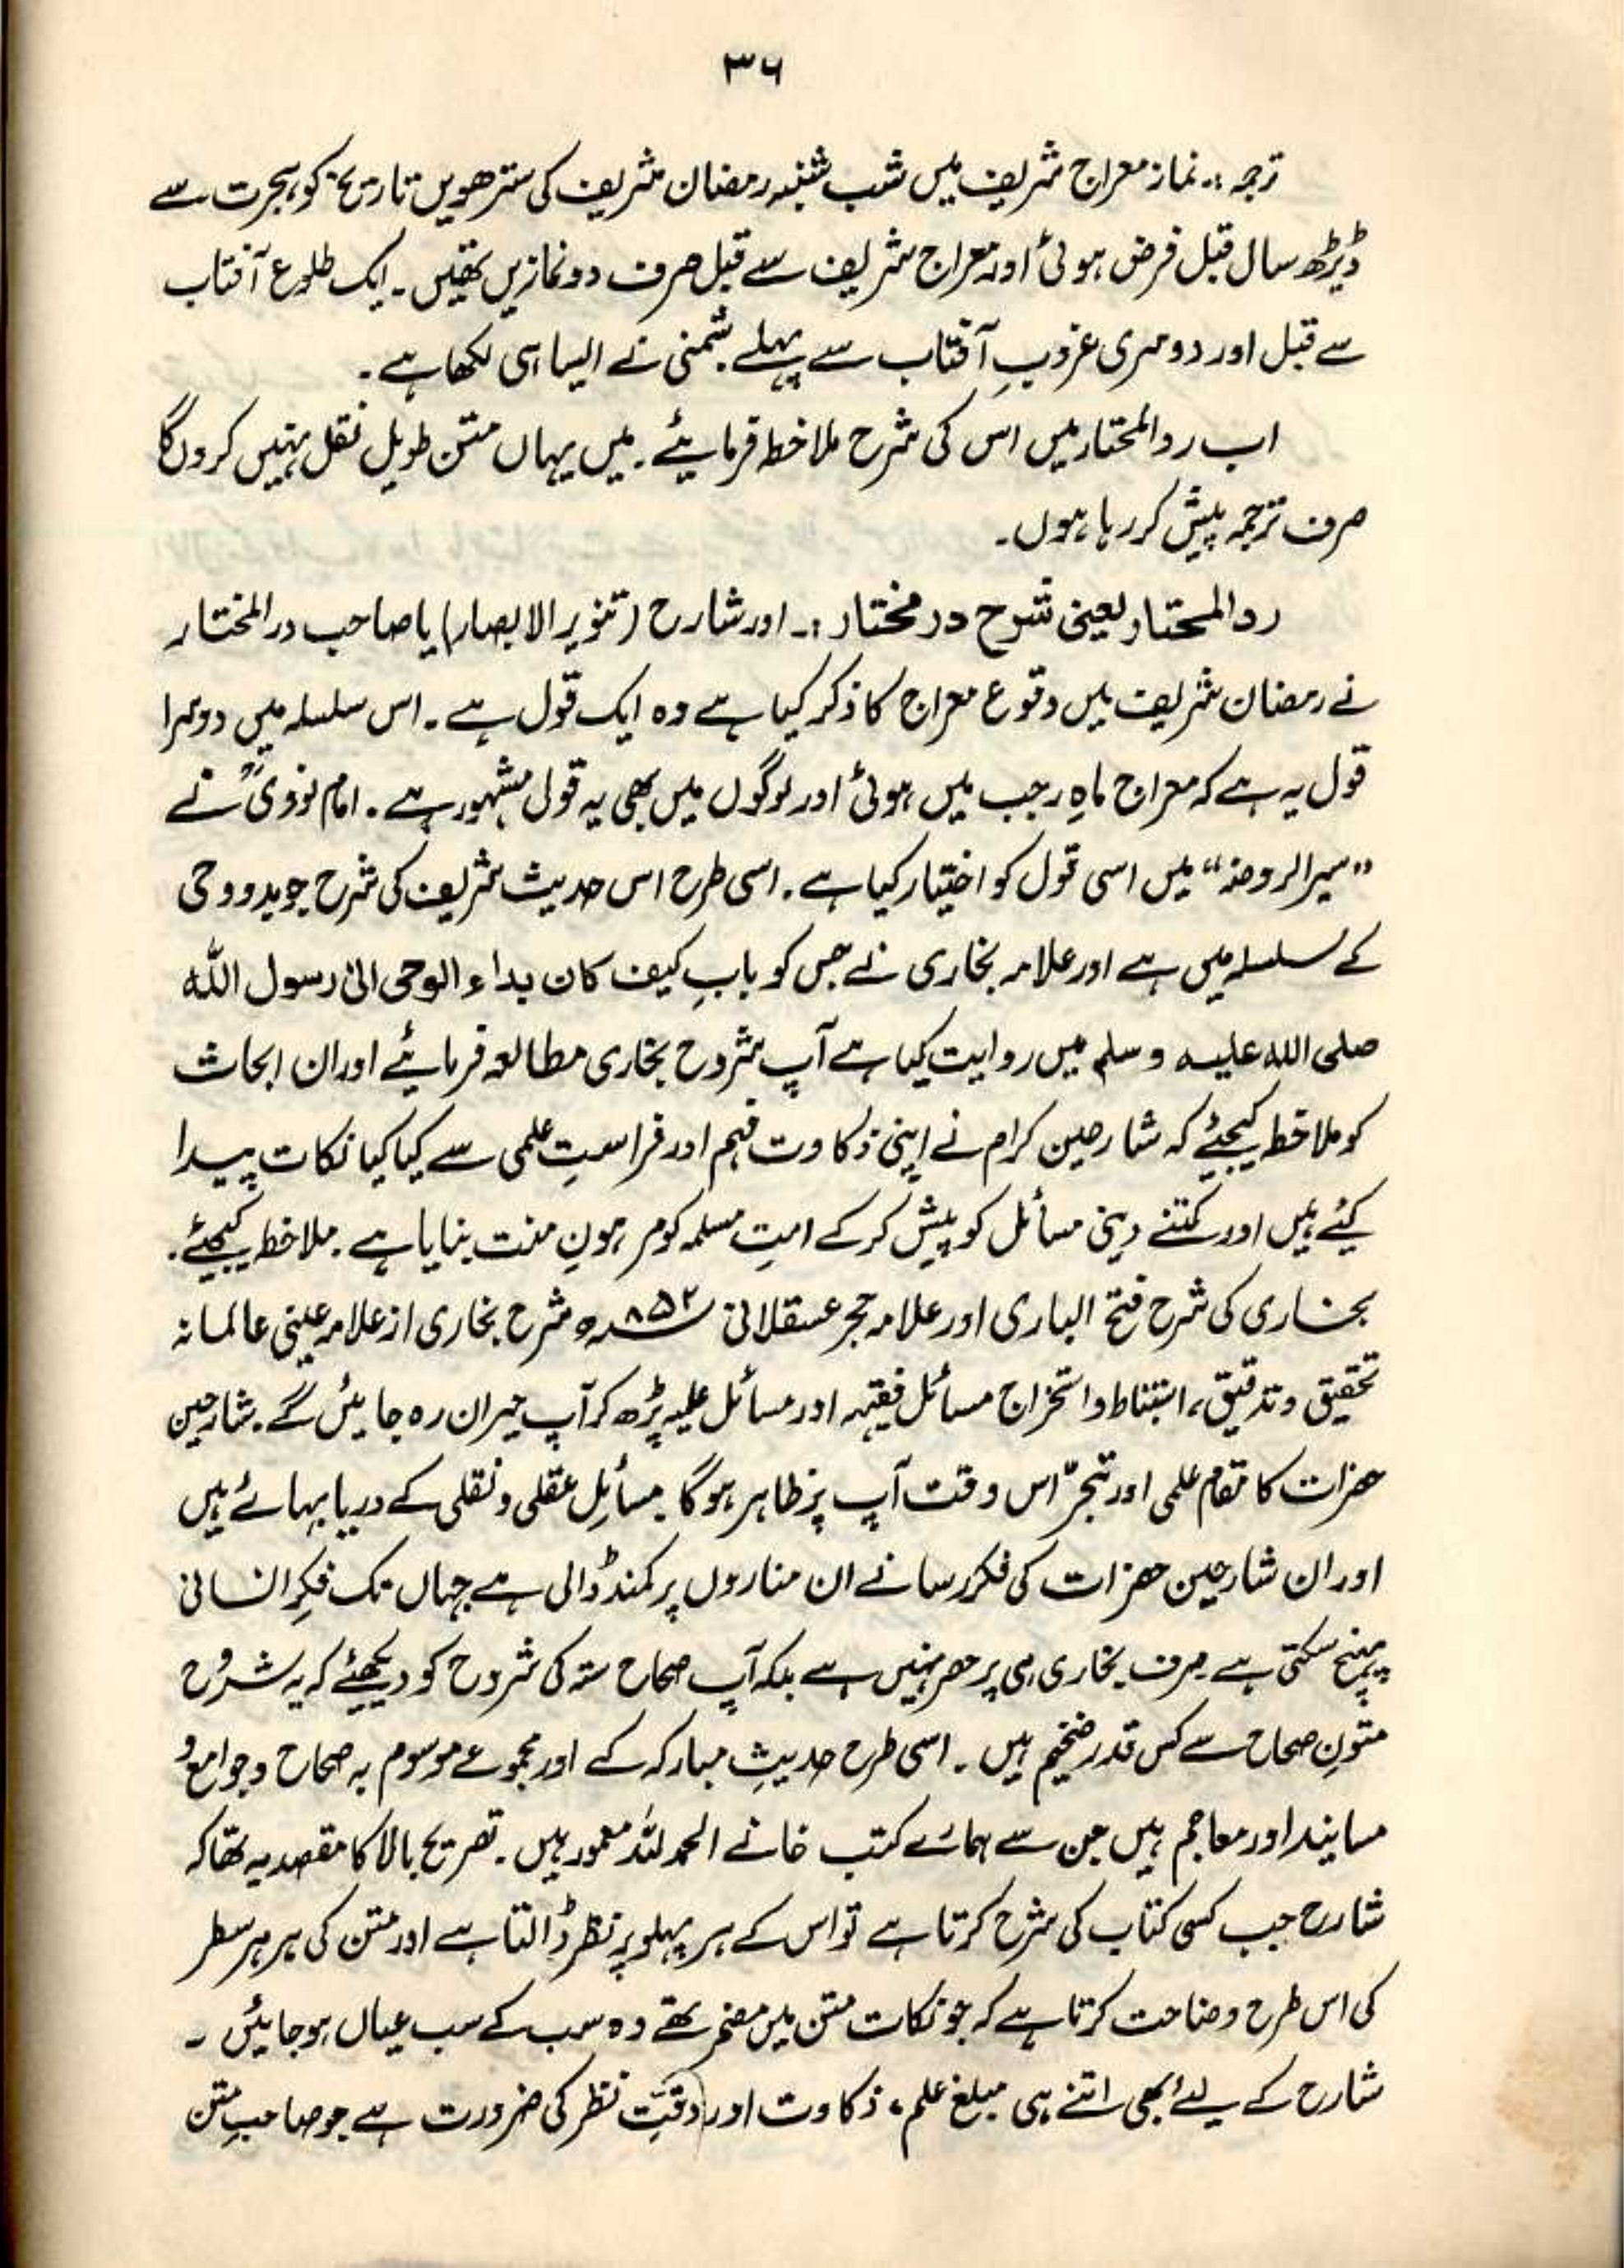 ۳۶
ترجمہ :۔ نماز معراج شریف میں شب شنبہ رمضان شریف کی سترھویں تاریخ کو ہجرت سے
ڈیڑھ سال قبل فرض ہوئی اور معراج شریف سے قبل صرف دو نمازیں تھیں ۔ ایک طلوع آفتاب
سے قبل اور دوسری غروبِ آفتاب سے پہلے ۔ شمنی نے ایسا ہی لکھا ہے ۔
اب رد المحتار میں اس کی شرح ملاخطہ فرمایئے ۔ میں یہاں متن طویل نقل نہیں کروں گا
صرف ترجمہ پیش کر رہا ہوں ۔
رد المحتار یعنی شرح در مختار :۔ اور شارح (تنویر الابصار) یا صاحب در المختار
نے رمضان شریف میں وقوع معراج کا ذکر کیا ہے وہ ایک قول ہے ۔ اس سلسلہ میں دوسرا
قول یہ ہے کہ معراج ماہِ رجب میں ہوئی اور لوگوں میں بھی یہ قول مشہور ہے ۔ امام نووی ؒ نے
"سیر الروضہ" میں اسی قول کو اختیار کیا ہے ۔ اسی طرح اس حدیث شریف کی شرح جو بدو وحی
کے سلسلہ میں ہے اور علامہ بخاری نے جس کو بابِ کیف کان بداء الوحی الیٰ رسول اللہ
صلی اللہ علیہ وسلم میں روایت کیا ہے آپ شروح بخاری مطالعہ فرمایئے اور ان ابحاث
کو ملاخطہ کیجئے کہ شارحین کرام نے اپنی ذکاوت فہم اور فراستِ علمی سے کیا کیا نکات پیدا
کئے ہیں اور کتنے دینی مسائل کو پیش کر کے امتِ مسلمہ کو مرہونِ منت بنایا ہے ۔ ملاخطہ کیجئے ۔
بخاری کی شرح فتح الباری اور علامہ حجر عسقلانی ۸۵۲ھ شرح بخاری از علامہ عینی عالمانہ
تحقیق و تدقیق ، استنباط و استخراج مسائل فقیہہ اور مسائل علیہ پڑھ کر آپ حیران رہ جائیں گے ۔ شارحین
حضرات کا مقام علمی اور تبحّر اس وقت آپ پر ظاہر ہوگا ۔ مسائلِ عقلی و نقلی کے دریا بہائے ہیں
اور ان شارحین حضرات کی فکر رسا نے ان مناروں پر کمند ڈالی ہے جہاں تک فکرِ انسانی
پہنچ سکتی ہے صرف بخاری ہی پر حصر نہیں ہے بلکہ آپ صحاح ستہ کی شروح کو دیکھئے کہ یہ شروح
متونِ صحاح سے کس قدر ضخیم ہیں ۔ اسی طرح حدیثِ مبارکہ کے اور مجموعے موسوم بہ صحاح و جوامع و
مسانید اور معاجم ہیں جن سے ہمارے کتب خانے الحمد للہ معمور ہیں ۔ تصریح بالا کا مقصد یہ تھا کہ
شارح جب کسی کتاب کی شرح کرتا ہے تو اس کے ہر پہلو پر نظر ڈالتا ہے اور متن کی ہر ہر سطر
کی اس طرح وضاحت کرتا ہے کہ جو نکات متن میں مضمر تھے وہ سب کے سب عیاں ہو جائیں ۔
شارح کے لیے بھی اتنے ہی مبلغ علم ، ذکاوت اور دقّتِ نظر کی ضرورت ہے جو صاحبِ متن